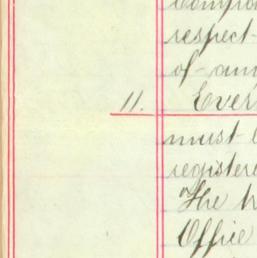 respect
of any
11. Every
must
registere
"The
Office